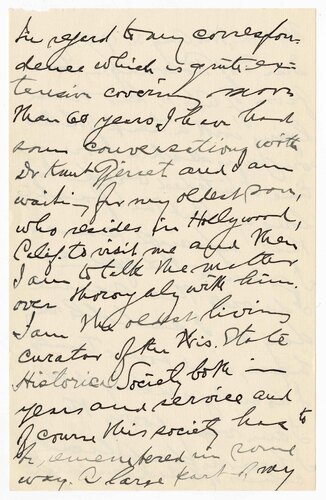 In regard to my correspon-
dence which is quite ex-
tensive covering more
than 60 years, I have had
some conversations with
Dr Knut Gjerset and I am
waiting for my oldest son,
who resides in Hollywood,
Calif. to visit me and then
I am to talk the matter
over thoroghly with him.
I am the oldest living
curator of the Wis. State
Historical Society both in
years and service and
of course this society has to
be remembered in some
way. A large part of my